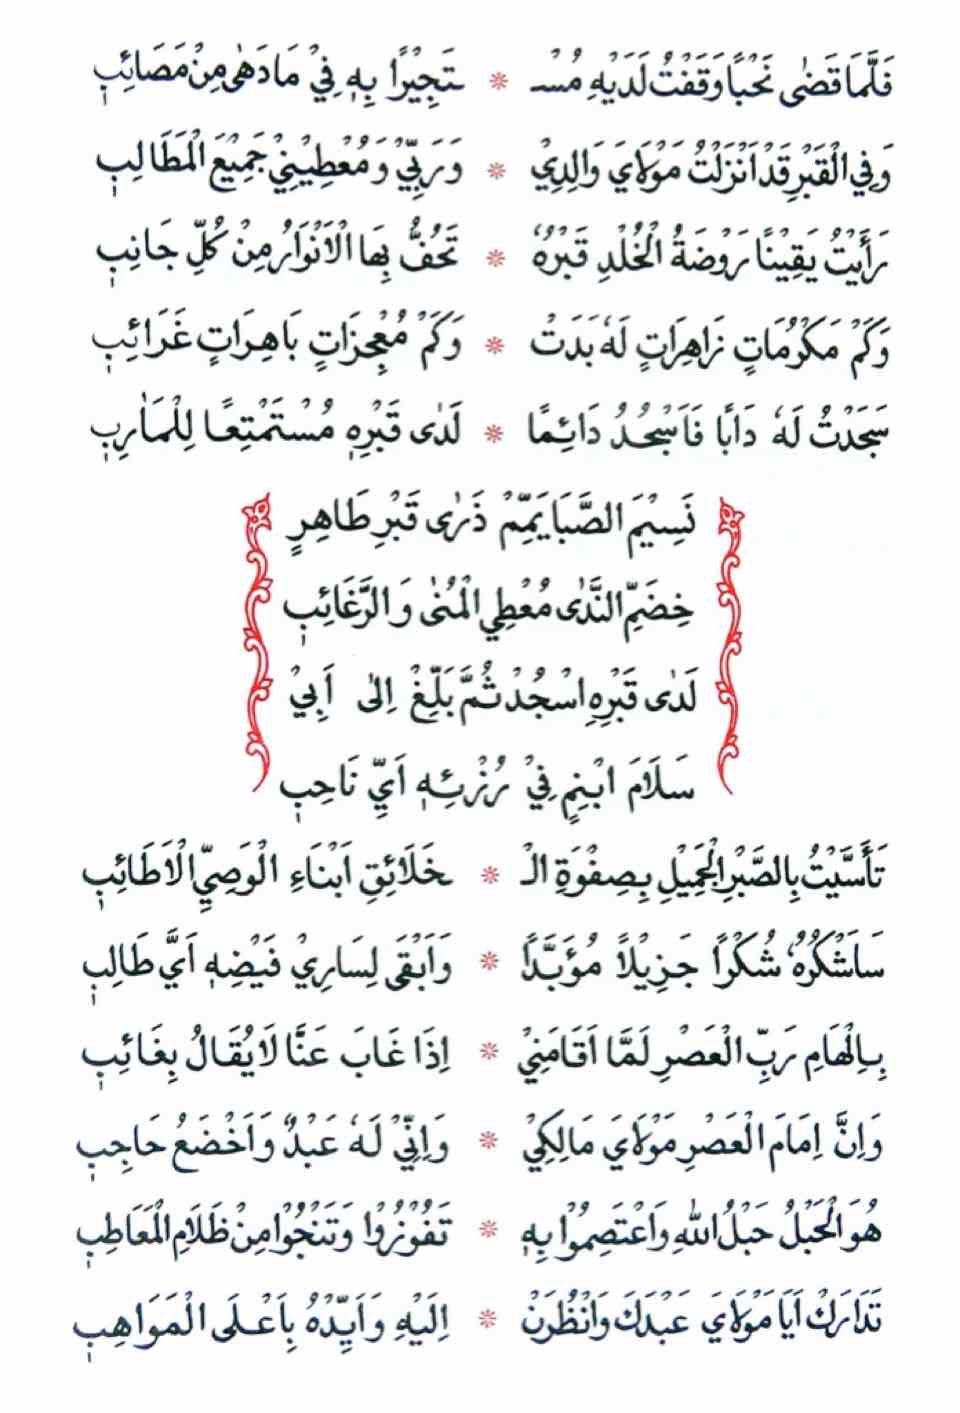 فَلَمَّا قَضٰى نَحْبًا وَقَفْتُ لَدَيْهِ مُسْـ * ـتَجِيْرًا بِهٖ فِيْ مَا دَهٰى مِنْ مَصَائِبٖ
وَفِي الْقَبْرِ قَدْ اَنْزَلْتُ مَوْلَايَ وَالِدِيْ * وَرَبِّيْ وَمُعْطِيْنِيْ جَمِيْعَ الْمَطَالِبٖ
رَأَيْتُ يَقِيْنًا رَوْضَةُ الْخُلْدِ قَبْرُهٗ * تَحُفُّ بِهَا الْاَنْوَارُ مِنْ كُلِّ جَانِبٖ
وَكَمْ مَكْرُمَاتٍ زَاهِرَاتٍ لَهٗ بَدَتْ * وَكَمْ مُعْجِزَاتٍ بَاهِرَاتٍ غَرَائِبٖ
سَجَدْتُ لَهٗ دَابًا فَاَسْجُدُ دَائِمًا * لَدٰى قَبْرِهٖ مُسْتَمْتِعًا لِلْمَاٰرِبٖ
نَسِيْمَ الصَّبَا يَمِّمْ ذَرٰى قَبْرِ طَاهِرٍ
خِضَمِّ النَّدٰى مُعْطِي الْمُنٰى وَالرَّغَائِبٖ
لَدٰى قَبْرِهِ اسْجُدْ ثُمَّ بَلِّغْ اِلٰى اَبِيْ
سَلَامَ ابْنِمٍ فِيْ رُزْئِهٖ اَيِّ نَاحِبٖ
تَأَسَّيْتُ بِالصَّبْرِ الْجَمِيْلِ بِصِفْوَةِ الْـ * ـخَلَائِقِ اَبْنَاءِ الْوَصِيِّ الْاَطَائِبٖ
سَاَشْكُرُهٗ شُكْرًا جَزِيْلًا مُؤَبَّدًا * وَاَبْقَى لِسَارِيْ فَيْضِهٖ اَيَّ طَالِبٖ
بِاِلْهَامِ رَبِّ الْعَصْرِ لَمَّا اَقَامَنِيْ * اِذَا غَابَ عَنَّا لَا يُقَالُ بِغَائِبٖ
وَاِنَّ اِمَامَ الْعَصْرِ مَوْلَايَ مَالِكِيْ * وَاِنِّيْ لَهٗ عَبْدٌ وَاَخْضَعُ حَاجِبٖ
هُوَ الْحَبْلُ حَبْلُ اللهِ وَاعْتَصِمُوْا بِهٖ * تَفُوْزُوْا وَتَنْجُوْا مِنْ ظَلَامِ الْمَعَاطِبٖ
تَدَارَكْ اَيَا مَوْلَايَ عَبْدَكَ وَانْظُرَنْ * اِلَيْهِ وَاَيِّدْهُ بِاَعْلَى الْمَوَاهِبٖ